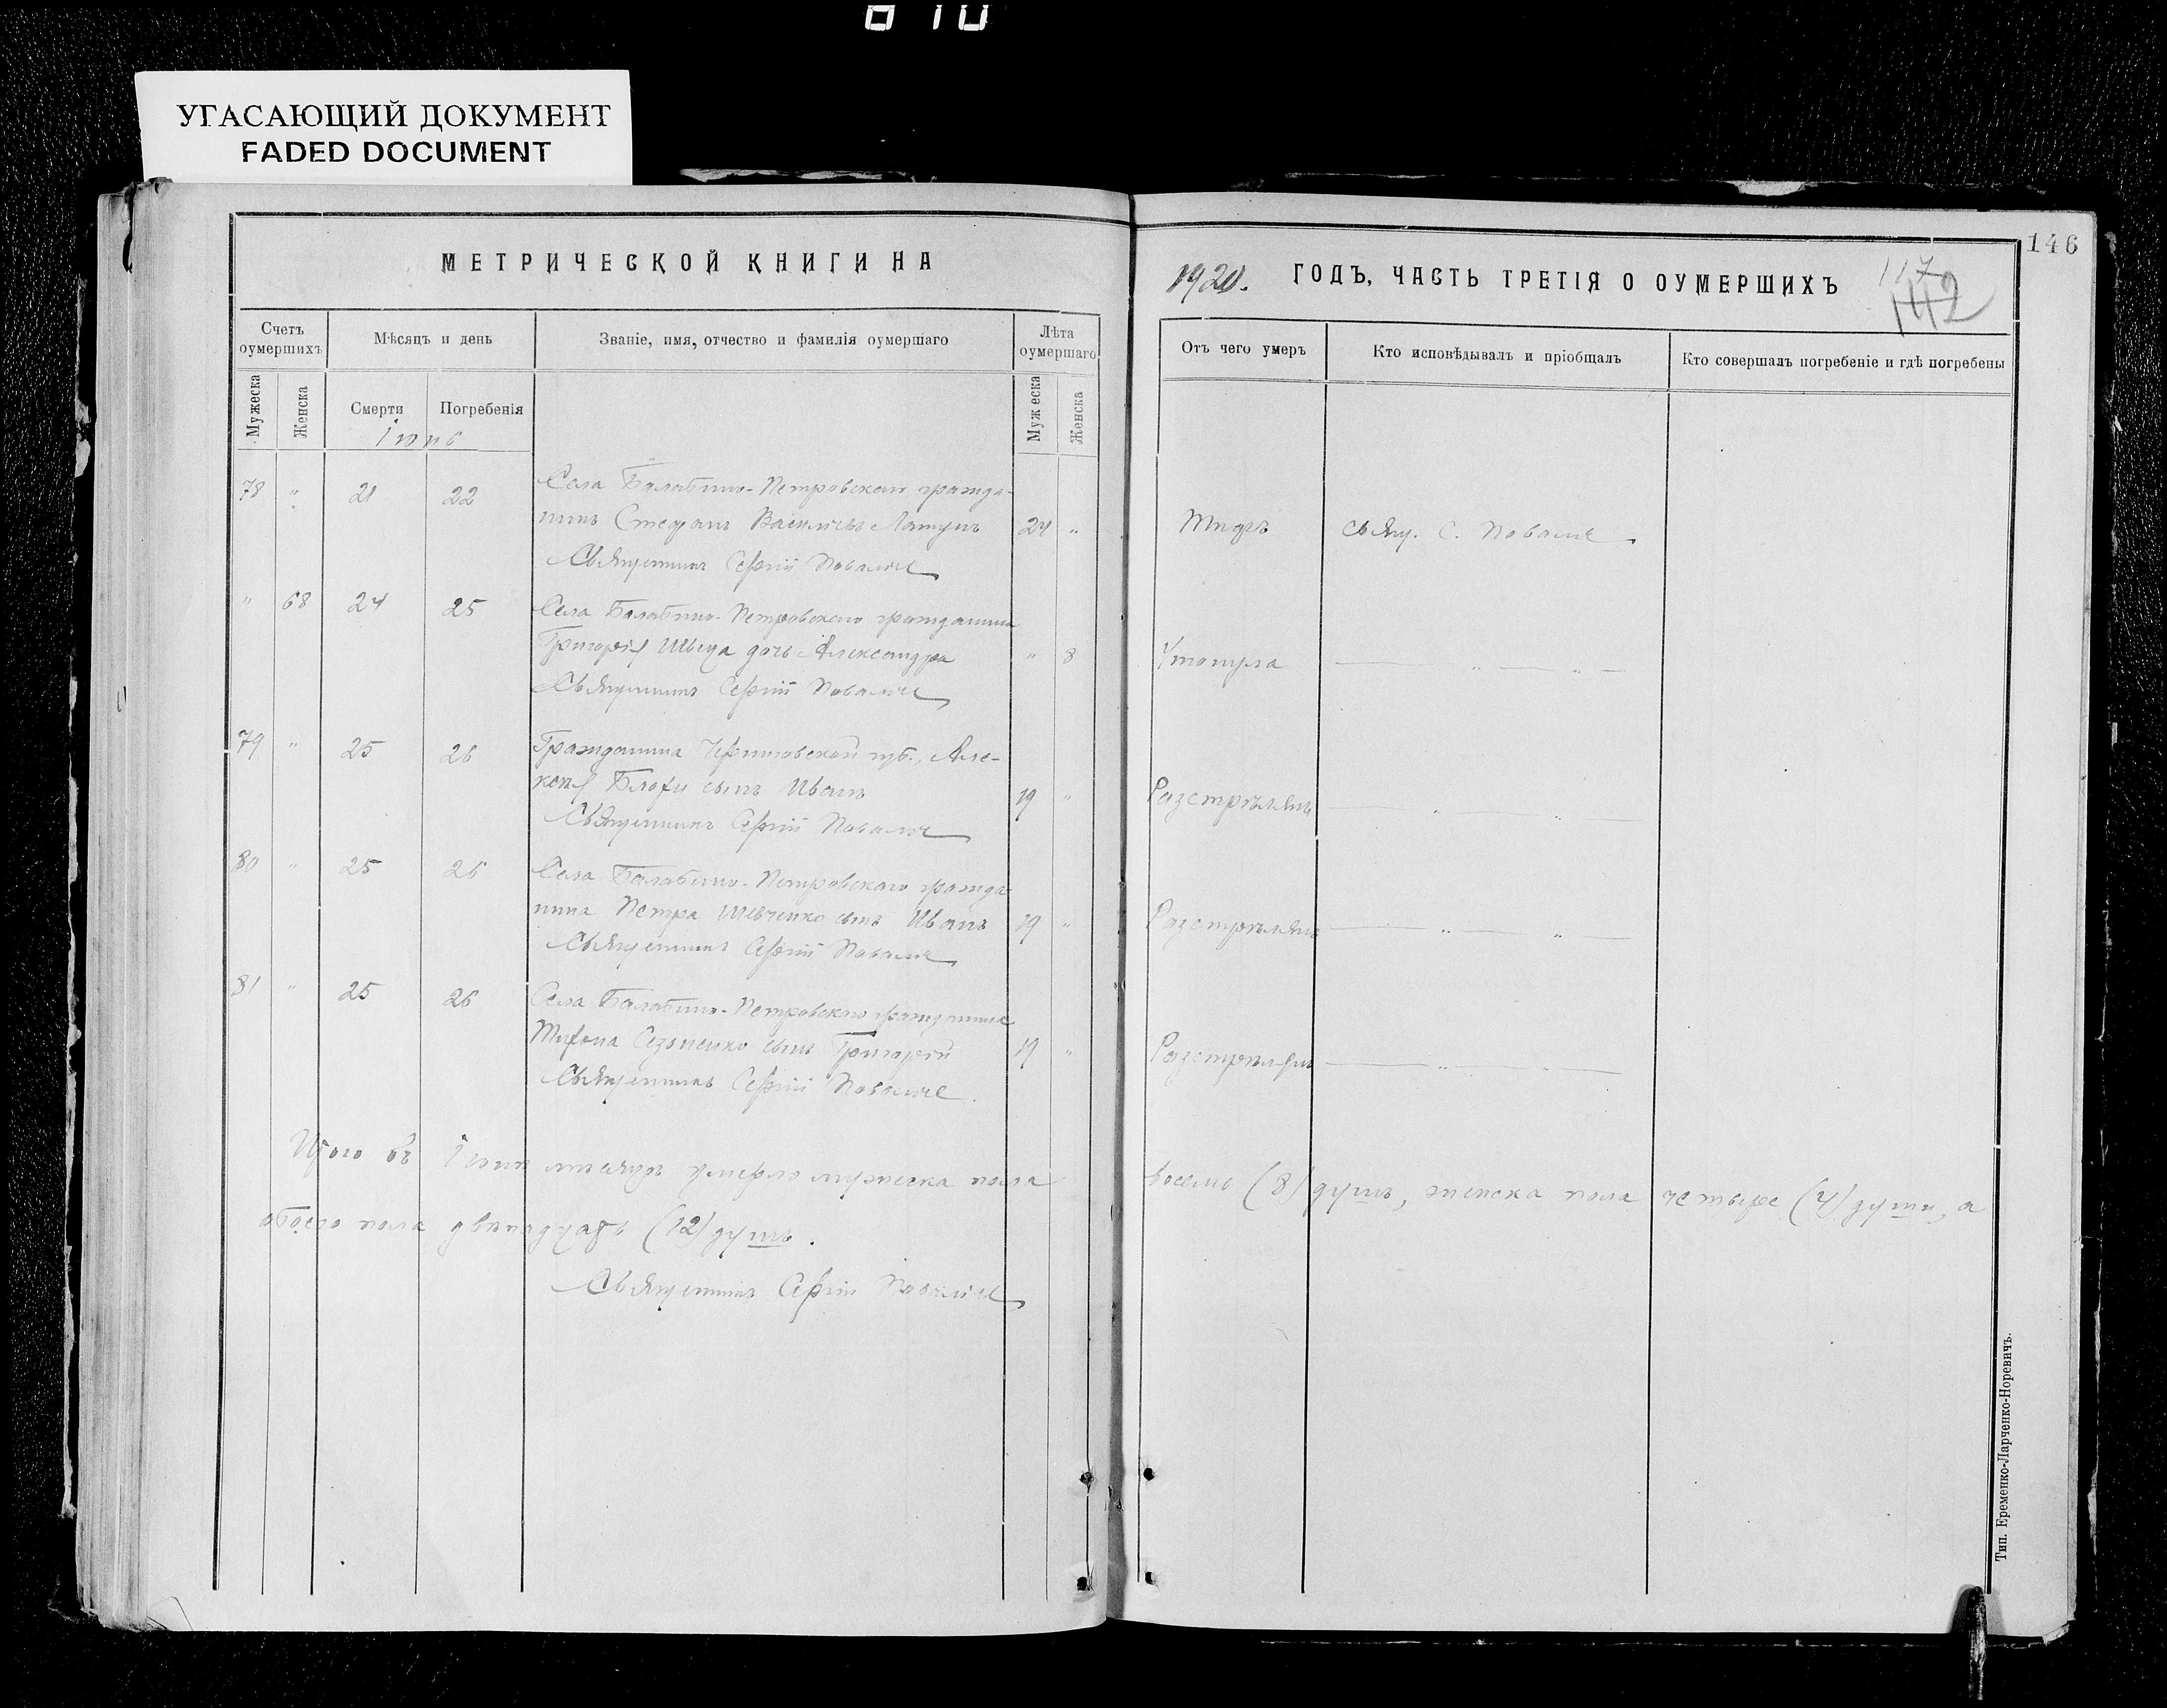 810
УГАСАЮЩИЙ ДОКУМЕНТ
FADED DOCUMENT
МЕТРИЧЕСКОЙ КНИГИ НА
Счетъ оумершихъ
Мѣсяцъ и день
Званіе, имя, отчество и фамилія оумершаго
Лѣта оумершаго
Мужеска
Женска
Смерти
Погребенія
Мужеска
Женска
78 " 21 22 Села Балабино-Петровскаго гражда-
нинъ Стефанъ 24 "
Священникъ Сергій
" 68 24 25 Села Балабино-Петровскаго гражданина
Григорія Швеца дочь Александра " 8
Священникъ Сергій
79 " 25 26 Гражданина Черниговской губ., Але-
сынъ Иванъ 19 "
Священникъ Сергій
80 " 25 26 Села Балабино-Петровскаго гражда
нина Петра Шевченко сынъ Иванъ 19 "
Священникъ Сергій
81 " 25 26 Села Балабино-Петровскаго гражданина
сынъ Григорій 19 "
Священникъ Сергій
Итого въ мѣсяцѣ умерло мужеска пола
обоего пола двѣнадцать (12) душъ.
Священникъ Сергій
146
1920. ГОДЪ, ЧАСТЬ ТРЕТІЯ О ОУМЕРШИХЪ
117
142
Отъ чего умеръ
Кто исповѣдывалъ и пріобщалъ
Кто совершалъ погребеніе и гдѣ погребены
Тифъ свящ. С.
Утонула " "
Разстрѣлянъ " "
Разстрѣлянъ " "
Разстрѣлянъ " "
восемь (8) душъ, женска пола четыре (4) души, а
Тип. Еременко-Ларченко-Норевичъ.